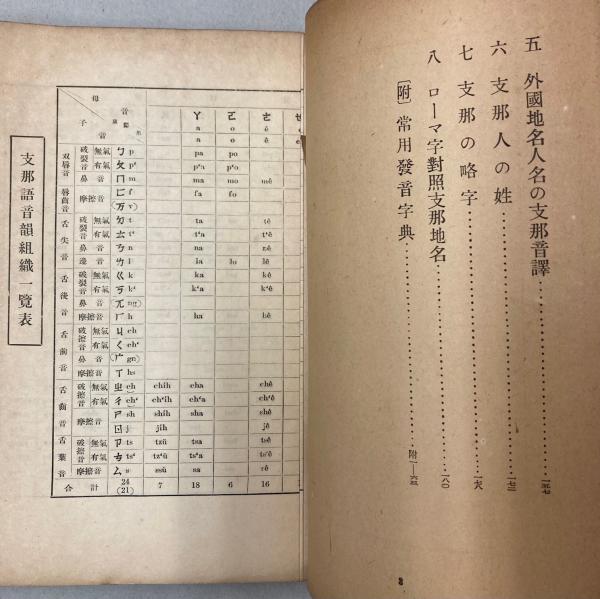 五 外國地名人名の支那音譯
六 支那人の姓
七 支那の略字
八 ローマ字對照支那地名
〔附〕常用發音字典
附一—六五
一八〇
3
支那語音韻組織一覽表
母音
子音
ㄚ ㄛ ㄜ ㄝ
a o ê
a o ê
双唇音 破裂音 無氣 ㄅ p pa po
有氣 ㄆ pʻ pʻa pʻo
鼻音 ㄇ m ma mo mê
唇齒音 摩擦音 ㄈ f fa fo
(万) (v)
舌尖音 破裂音 無氣 ㄉ t ta tê
有氣 ㄊ tʻ tʻa tʻê
鼻音 ㄋ n na nê
邊音 ㄌ l la lo lê
舌後音 破裂音 無氣 ㄍ k ka kê
有氣 ㄎ kʻ kʻa kʻê
鼻音 (兀) (ng)
摩擦音 ㄏ h ha hê
舌前音 破擦音 無氣 ㄐ ch
有氣 ㄑ chʻ
鼻音 (广) (gn)
摩擦音 ㄒ hs
舌齒音 破擦音 無氣 ㄓ ch chih cha chê
有氣 ㄔ chʻ chʻih chʻa chʻê
摩擦音 ㄕ sh shih sha shê
ㄖ j jih jê
舌葉音 破擦音 無氣 ㄗ ts tzŭ tsa tsê
有氣 ㄘ tsʻ tzʻŭ tsʻa tsʻê
摩擦音 ㄙ s ssŭ sa sê
合計 24 (21) 7 18 6 16